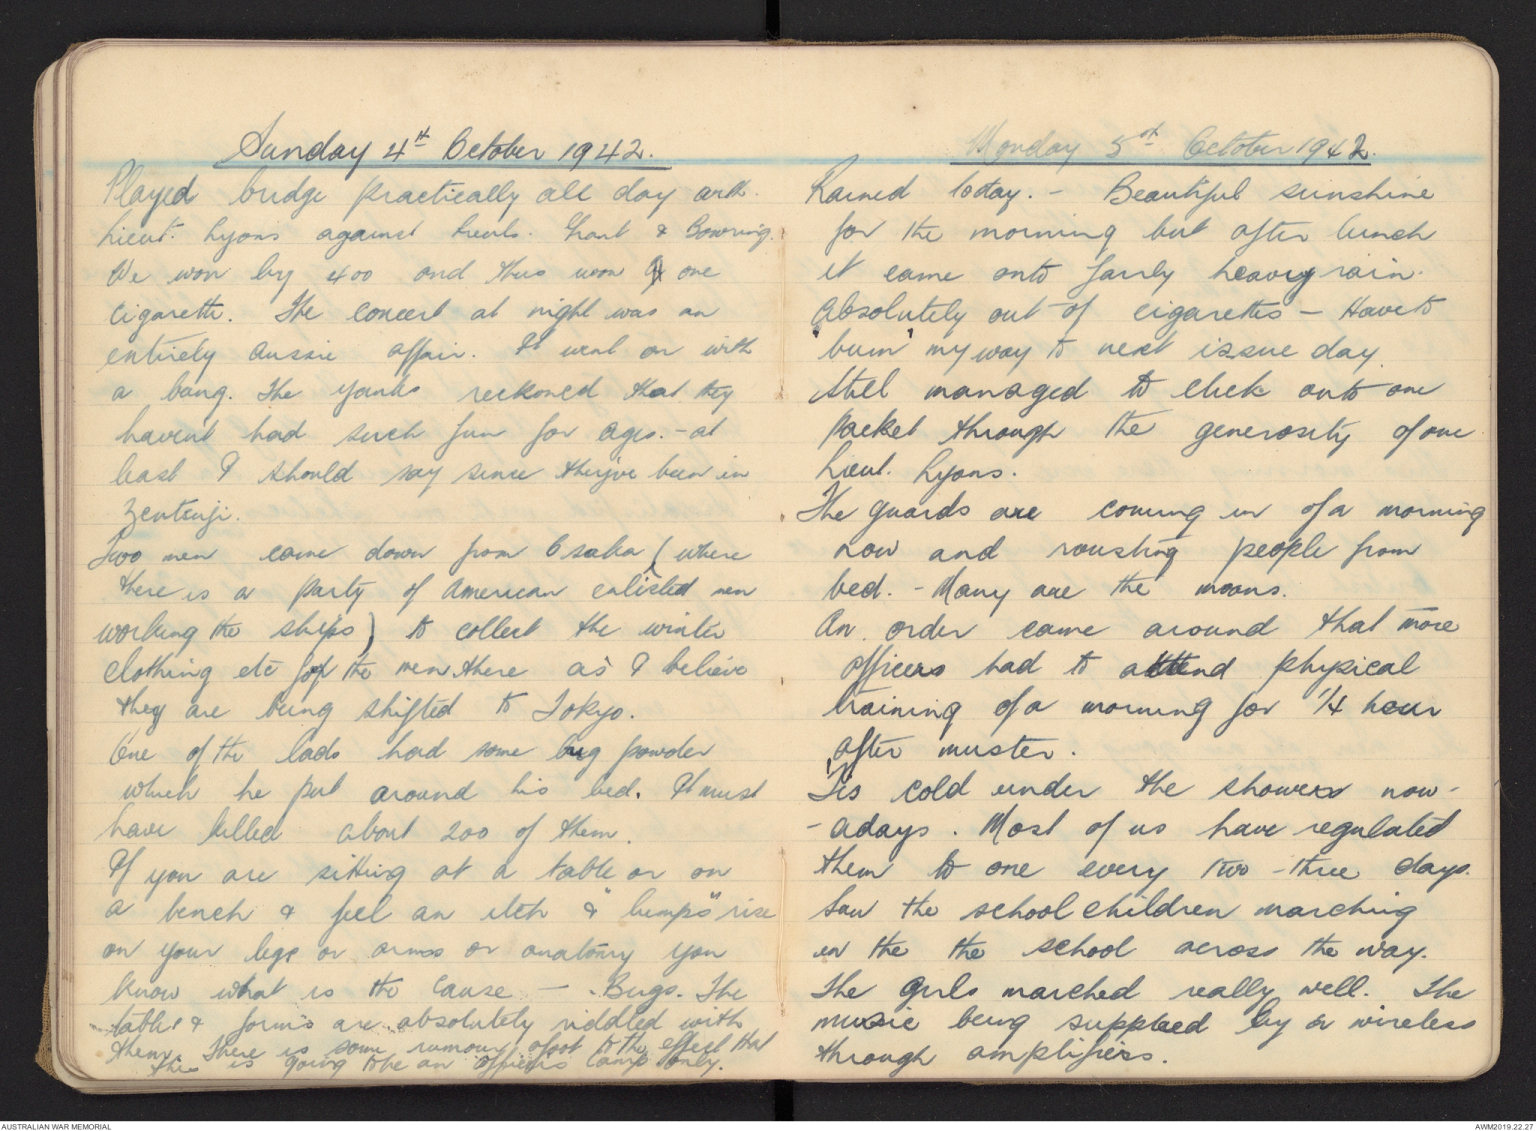 Sunday 4th October 1942.
Played bridge practically all day with
Lieut. Lyons against Lieuts. Grant & Bowring.
We won by 400 and thus won one
cigarette. The concert at night was an
entirely Aussie affair. It went on with
a bang. The yanks reckoned that they
havent had such fun for ages. - at
least I should say since they've been in
Zentsuji.
Two men came down from Osaka (where
there is a party of American enlisted men
working the ships) to collect the winter
clothing etc for the men there as I believe
they are being shifted to Tokyo.
One of the lads had some bug powder
which he put around his bed. It must
have killed about 200 of them.
If you are sitting at a table or on
a bench & feel an itch & "bumps" rise
on your legs or arms or anatomy you
know what is the cause - Bugs. The
tables & forms are absolutely riddled with
them. There is some rumour afoot to the effect that
this is going to be an officers camp only.
Monday 5th October 1942.
Rained today. - Beautiful sunshine
for the morning but after lunch
it came onto fairly heavy rain.
Absolutely out of cigarettes - Have to
'bum' my way to next issue day.
Still managed to click onto one
packet through the generosity of one
Lieut. Lyons.
The guards are coming in of a morning
now and rousting people from
bed. - Many are the moans.
An order came around that more
officers had to attend physical
training of a morning for 1/4 hour
after muster.
'Tis cold under the showers now-
-adays. Most of us have regulated
them to one every two-three days.
Saw the school children marching
in the the school across the way.
The girls marched really well. The
music being supplied by a wireless
through amplifiers.
AUSTRALIAN WAR MEMORIAL
AWM2019.22.27